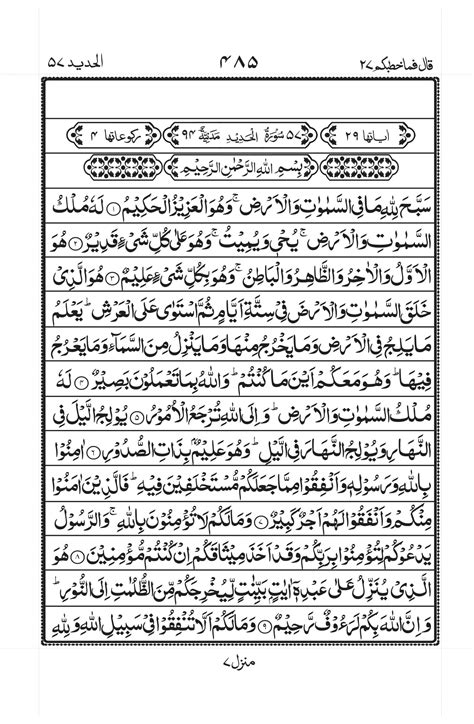 قال فما خطبكم ٢٧ ۴٨۵ الحديد ۵٧
اٰیاتها ٢٩ ۵٧ سُوْرَةُ الْحَدِيْدِ مَدَنِيَّةٌ ٩۴ رکوعاتها ۴
بِسْمِ اللّٰهِ الرَّحْمٰنِ الرَّحِيْمِ
سَبَّحَ لِلّٰهِ مَا فِى السَّمٰوٰتِ وَالْاَرْضِ ۚ وَهُوَ الْعَزِيْزُ الْحَكِيْمُ ﴿١﴾ لَهٗ مُلْكُ
السَّمٰوٰتِ وَالْاَرْضِ ۚ يُحْيٖ وَيُمِيْتُ ۚ وَهُوَ عَلٰى كُلِّ شَىْءٍ قَدِيْرٌ ﴿٢﴾ هُوَ
الْاَوَّلُ وَالْاٰخِرُ وَالظَّاهِرُ وَالْبَاطِنُ ۚ وَهُوَ بِكُلِّ شَىْءٍ عَلِيْمٌ ﴿٣﴾ هُوَ الَّذِىْ
خَلَقَ السَّمٰوٰتِ وَالْاَرْضَ فِىْ سِتَّةِ اَيَّامٍ ثُمَّ اسْتَوٰى عَلَى الْعَرْشِ ؕ يَعْلَمُ
مَا يَلِجُ فِى الْاَرْضِ وَمَا يَخْرُجُ مِنْهَا وَمَا يَنْزِلُ مِنَ السَّمَآءِ وَمَا يَعْرُجُ
فِيْهَا ؕ وَهُوَ مَعَكُمْ اَيْنَ مَا كُنْتُمْ ؕ وَاللّٰهُ بِمَا تَعْمَلُوْنَ بَصِيْرٌ ﴿۴﴾ لَهٗ
مُلْكُ السَّمٰوٰتِ وَالْاَرْضِ ؕ وَاِلَى اللّٰهِ تُرْجَعُ الْاُمُوْرُ ﴿۵﴾ يُوْلِجُ الَّيْلَ فِى
النَّهَارِ وَيُوْلِجُ النَّهَارَ فِى الَّيْلِ ؕ وَهُوَ عَلِيْمٌۢ بِذَاتِ الصُّدُوْرِ ﴿٦﴾ اٰمِنُوْا
بِاللّٰهِ وَرَسُوْلِهٖ وَاَنْفِقُوْا مِمَّا جَعَلَكُمْ مُّسْتَخْلَفِيْنَ فِيْهِ ؕ فَالَّذِيْنَ اٰمَنُوْا
مِنْكُمْ وَاَنْفَقُوْا لَهُمْ اَجْرٌ كَبِيْرٌ ﴿٧﴾ وَمَا لَكُمْ لَا تُؤْمِنُوْنَ بِاللّٰهِ ۚ وَالرَّسُوْلُ
يَدْعُوْكُمْ لِتُؤْمِنُوْا بِرَبِّكُمْ وَقَدْ اَخَذَ مِيْثَاقَكُمْ اِنْ كُنْتُمْ مُّؤْمِنِيْنَ ﴿٨﴾ هُوَ
الَّذِىْ يُنَزِّلُ عَلٰى عَبْدِهٖۤ اٰيٰتٍۭ بَيِّنٰتٍ لِّيُخْرِجَكُمْ مِّنَ الظُّلُمٰتِ اِلَى النُّوْرِ ؕ
وَاِنَّ اللّٰهَ بِكُمْ لَرَءُوْفٌ رَّحِيْمٌ ﴿٩﴾ وَمَا لَكُمْ اَلَّا تُنْفِقُوْا فِىْ سَبِيْلِ اللّٰهِ وَلِلّٰهِ
منزل ٧